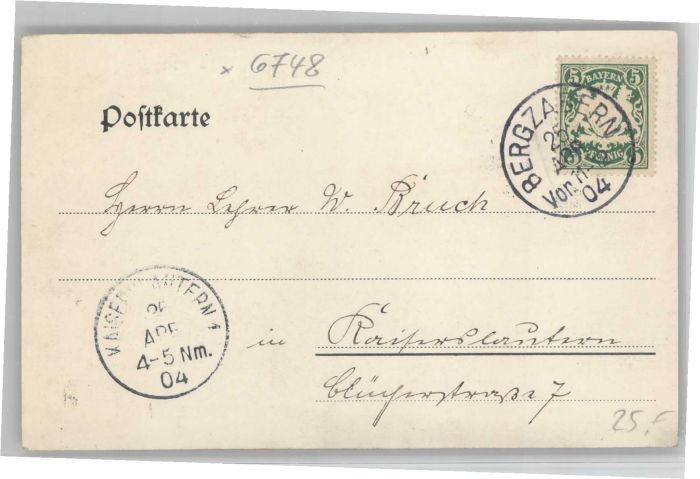 × 6748
Postkarte
5 BAYERN 5
PFENNIG
BERGZABERN
25
APR
Vor. 11
04
Herrn Lehrer W. Bruch
in Kaiserslautern
Blücherstraße 7
KAISERSLAUTERN 1
25
APR
4-5 Nm.
04
25,-